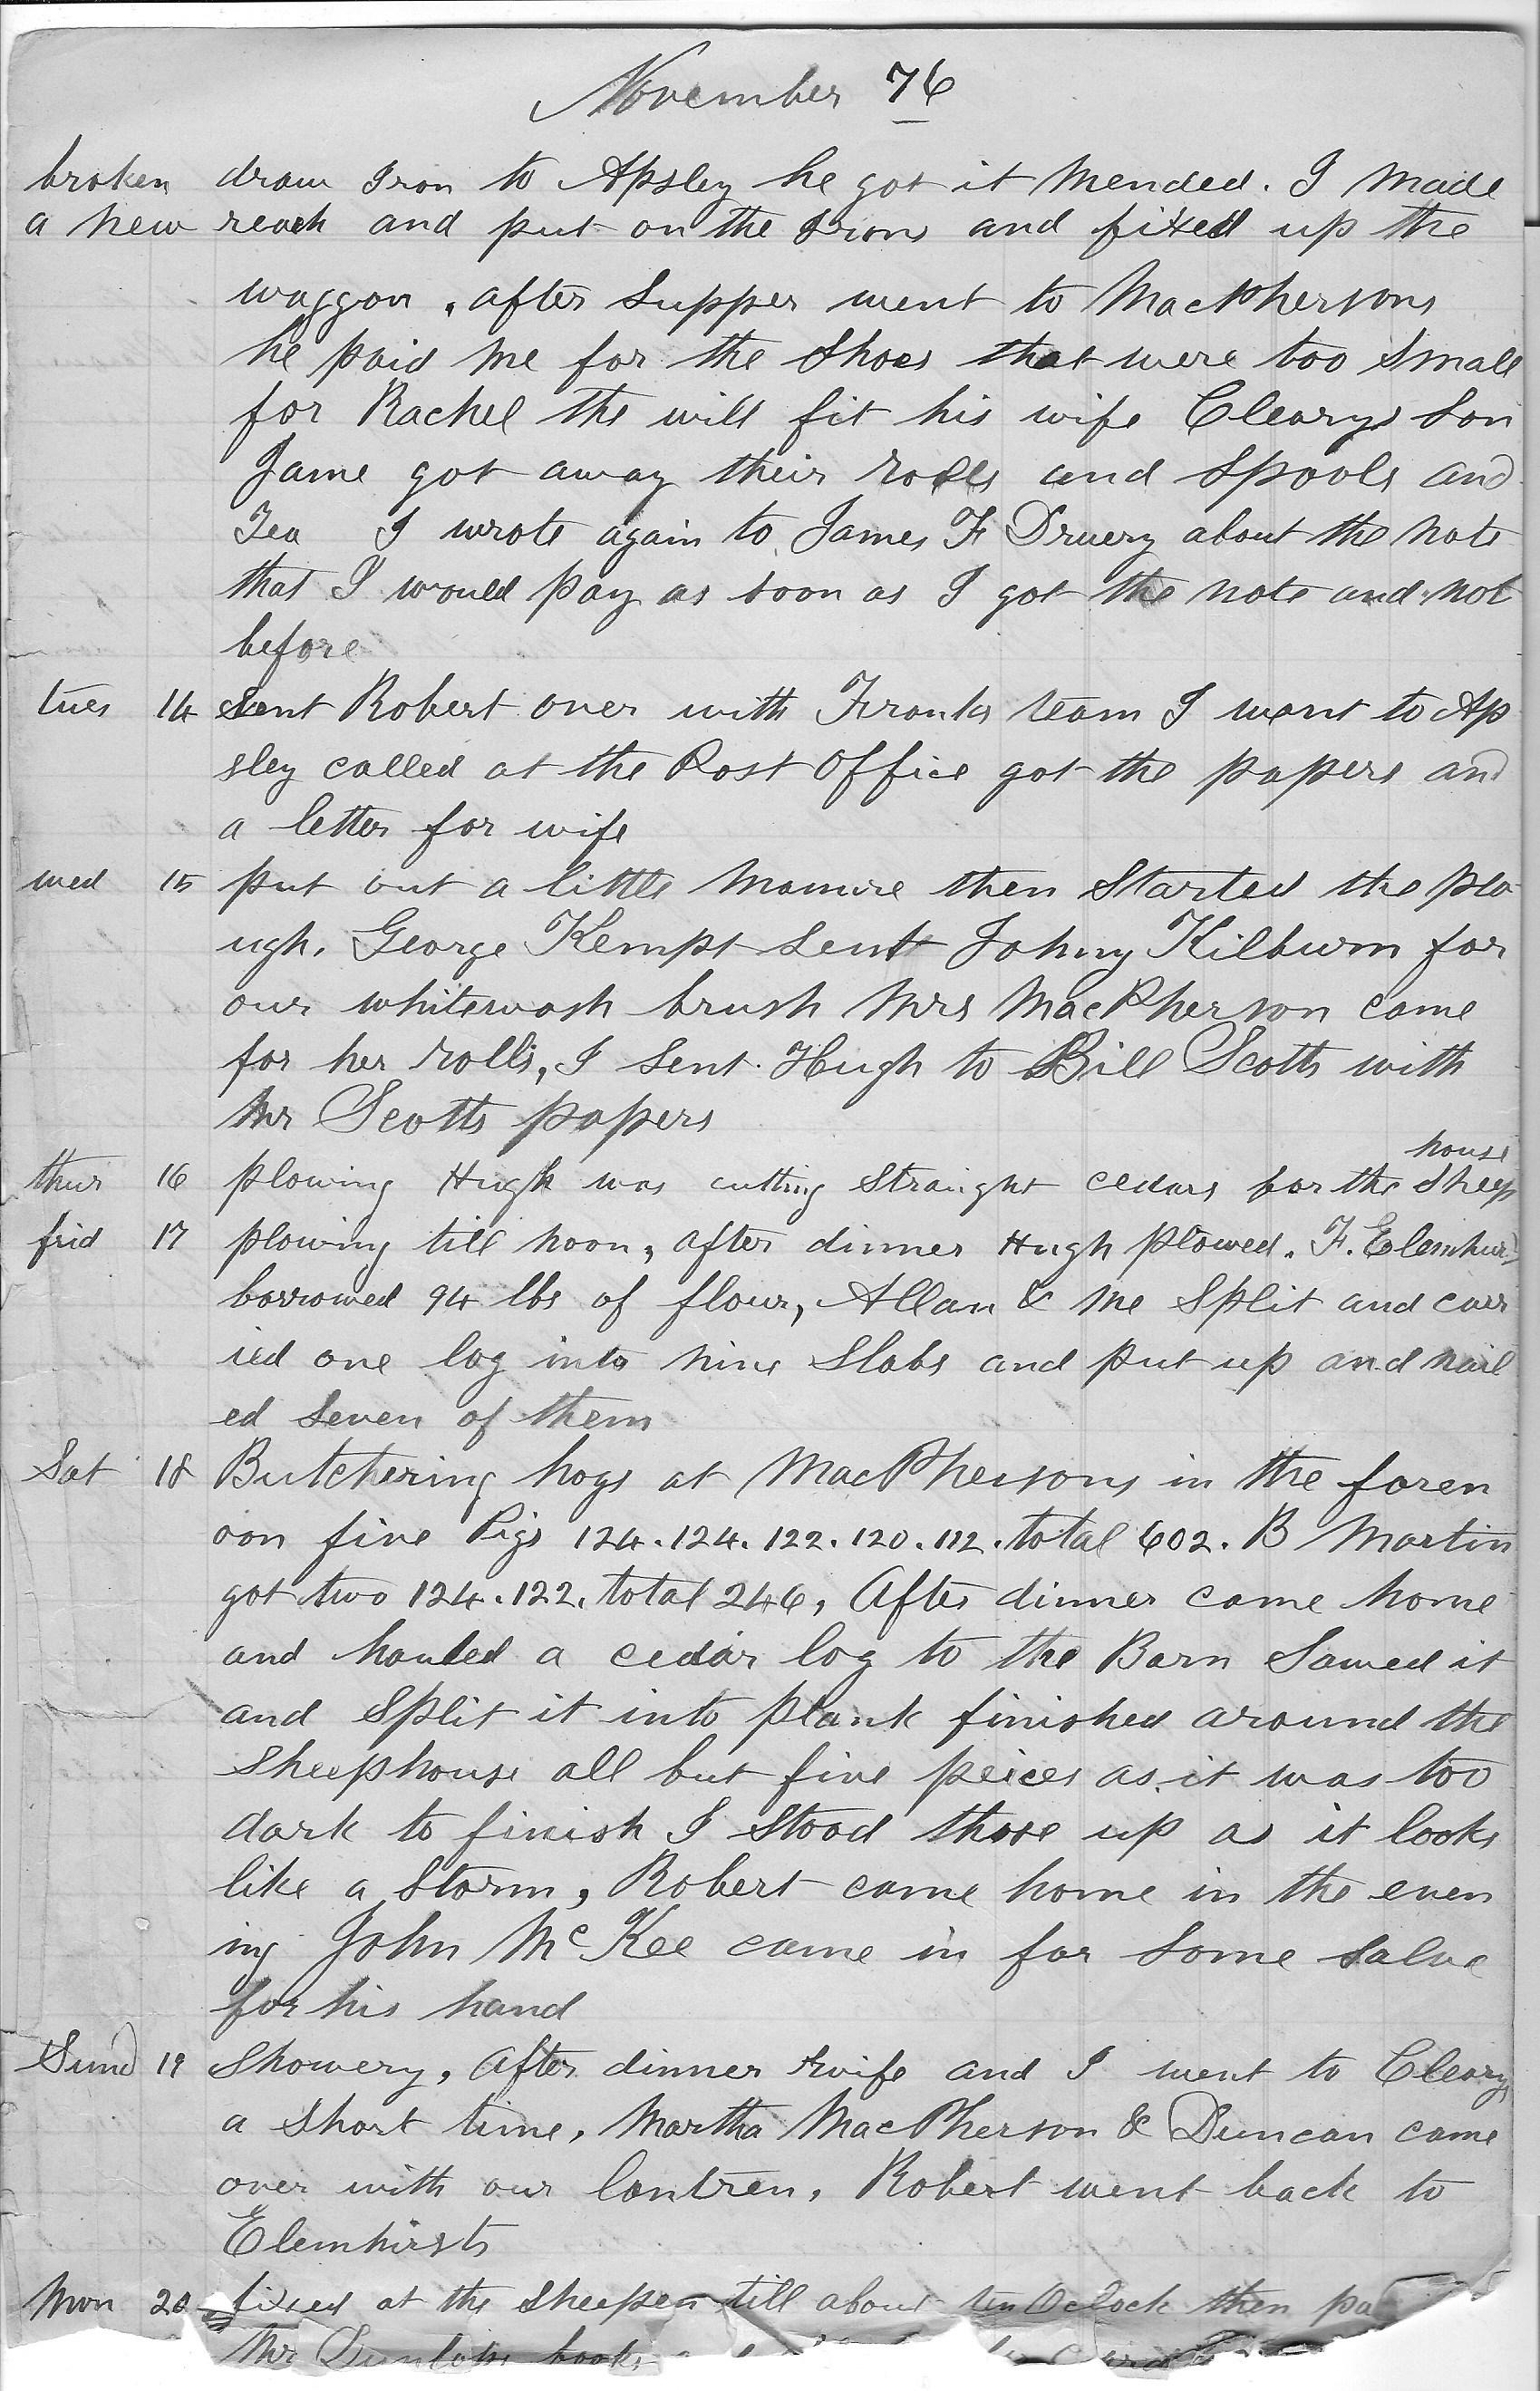 November 76
broken draw Iron to Apsley he got it mended. I made
a new reach and put on the Irons and fixed up the
waggon, after Supper went to MacPhersons
he paid me for the Shoes that were too Small
for Rachel the will fit his wife Clearys Son
Jame got away their rolls and Spools and
Tea I wrote again to James F Druery about the note
that I would pay as soon as I got the note and not
before
tues 14 Sent Robert over with Franks team I want to Ap
sley called at the Post Office got the papers and
a letter for wife
wed 15 put out a little Manure then Started the plo
ugh. George Kempt Sent Johny Kilburn for
our whitewash brush Mrs MacPherson came
for her rolls, I Sent Hugh to Bill Scotts with
Mr Scotts papers
house
thur 16 plowing Hugh was cutting Straight cedars for the Sheep
frid 17 plowing till noon, after dinner Hugh plowed. F. Elemhurs
borrowed 94 lbs of flour, Allan & me Split and carr
ied one log into nine Slabs and put up and nail
ed Seven of them
Sat 18 Butchering hogs at MacPhersons in the foren
oon five Pigs 124. 124. 122. 120. 112. total 602. B Martin
got two 124. 122. total 246, After dinner came home
and hauled a cedar log to the Barn Sawed it
and Split it into plank finished around the
Sheephouse all but five peices as it was too
dark to finish I Stood those up as it looks
like a Storm, Robert came home in the even
ing John McKee came in for Some Salve
for his hand
Sund 19 Showery, After dinner wife and I went to Clearys
a Short time, Martha MacPherson & Duncan came
over with our lantren, Robert went back to
Elemhirsts
Mon 20 fixed at the Sheepen till about ten Oclock then
Mr Dunlops books